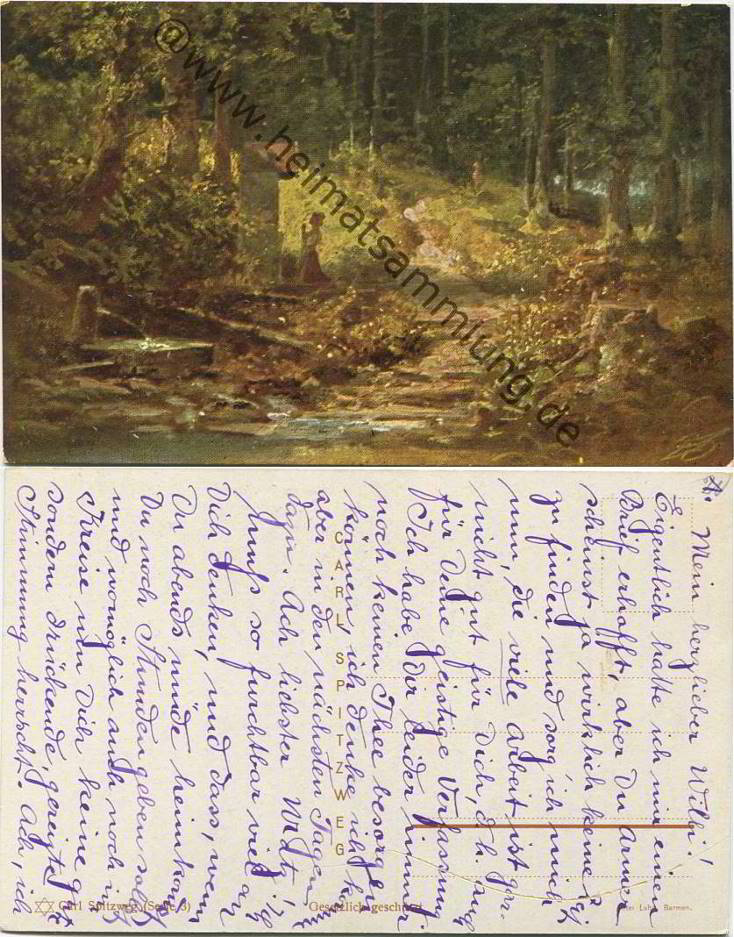 @www.heimatsammlung.de
A. Mein herzlieber Willi!
Eigentlich hatte ich mir einen
Brief erhofft, aber Du Armer
scheinst ja wirklich keine Zeit
zu finden und sorg' ich mich
nun, die viele Arbeit ist gar
nicht gut für Dich, d.h. auch
für Deine geistige Verfassung.
Ich habe Dir leider immer
noch keinen Thee besorgen
können, ich denke ich
aber in den nächsten Tagen
dazu. Ach liebster Willi, ich
muss so furchtbar viel an
Dich denken, und dass, wenn
Du abends müde heimkommst
Du noch Stunden geben sollst
und womöglich auch noch im
Kreise um Dich keine
sondern drückende, gereizte
Stimmung herrscht. Ach, ich
CARL SPITZWEG
Carl Spitzweg (Serie 3)
Gesetzlich geschützt
Barmen.